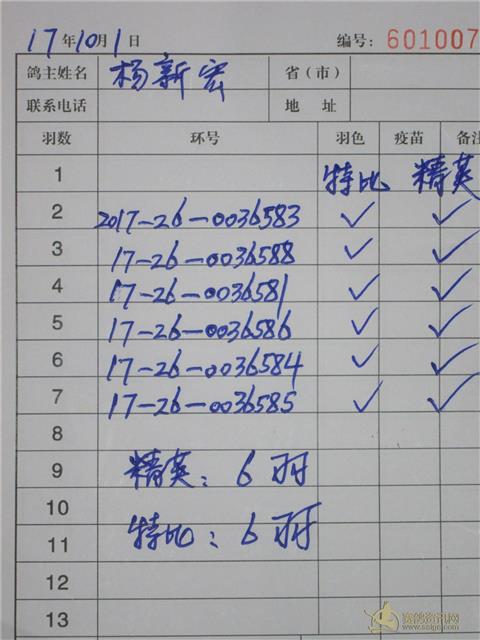 17年10月1日 编号: 601007
鸽主姓名 杨新宏 省(市)
联系电话 地 址
羽数 环号 羽色 疫苗 备注
1 特比 精英
2 2017-26-0036583 ✓ ✓
3 17-26-0036588 ✓ ✓
4 17-26-0036581 ✓ ✓
5 17-26-0036586 ✓ ✓
6 17-26-0036584 ✓ ✓
7 17-26-0036585 ✓ ✓
8
9 精英: 6羽
10
11 特比: 6羽
12
13
赛鸽资讯网